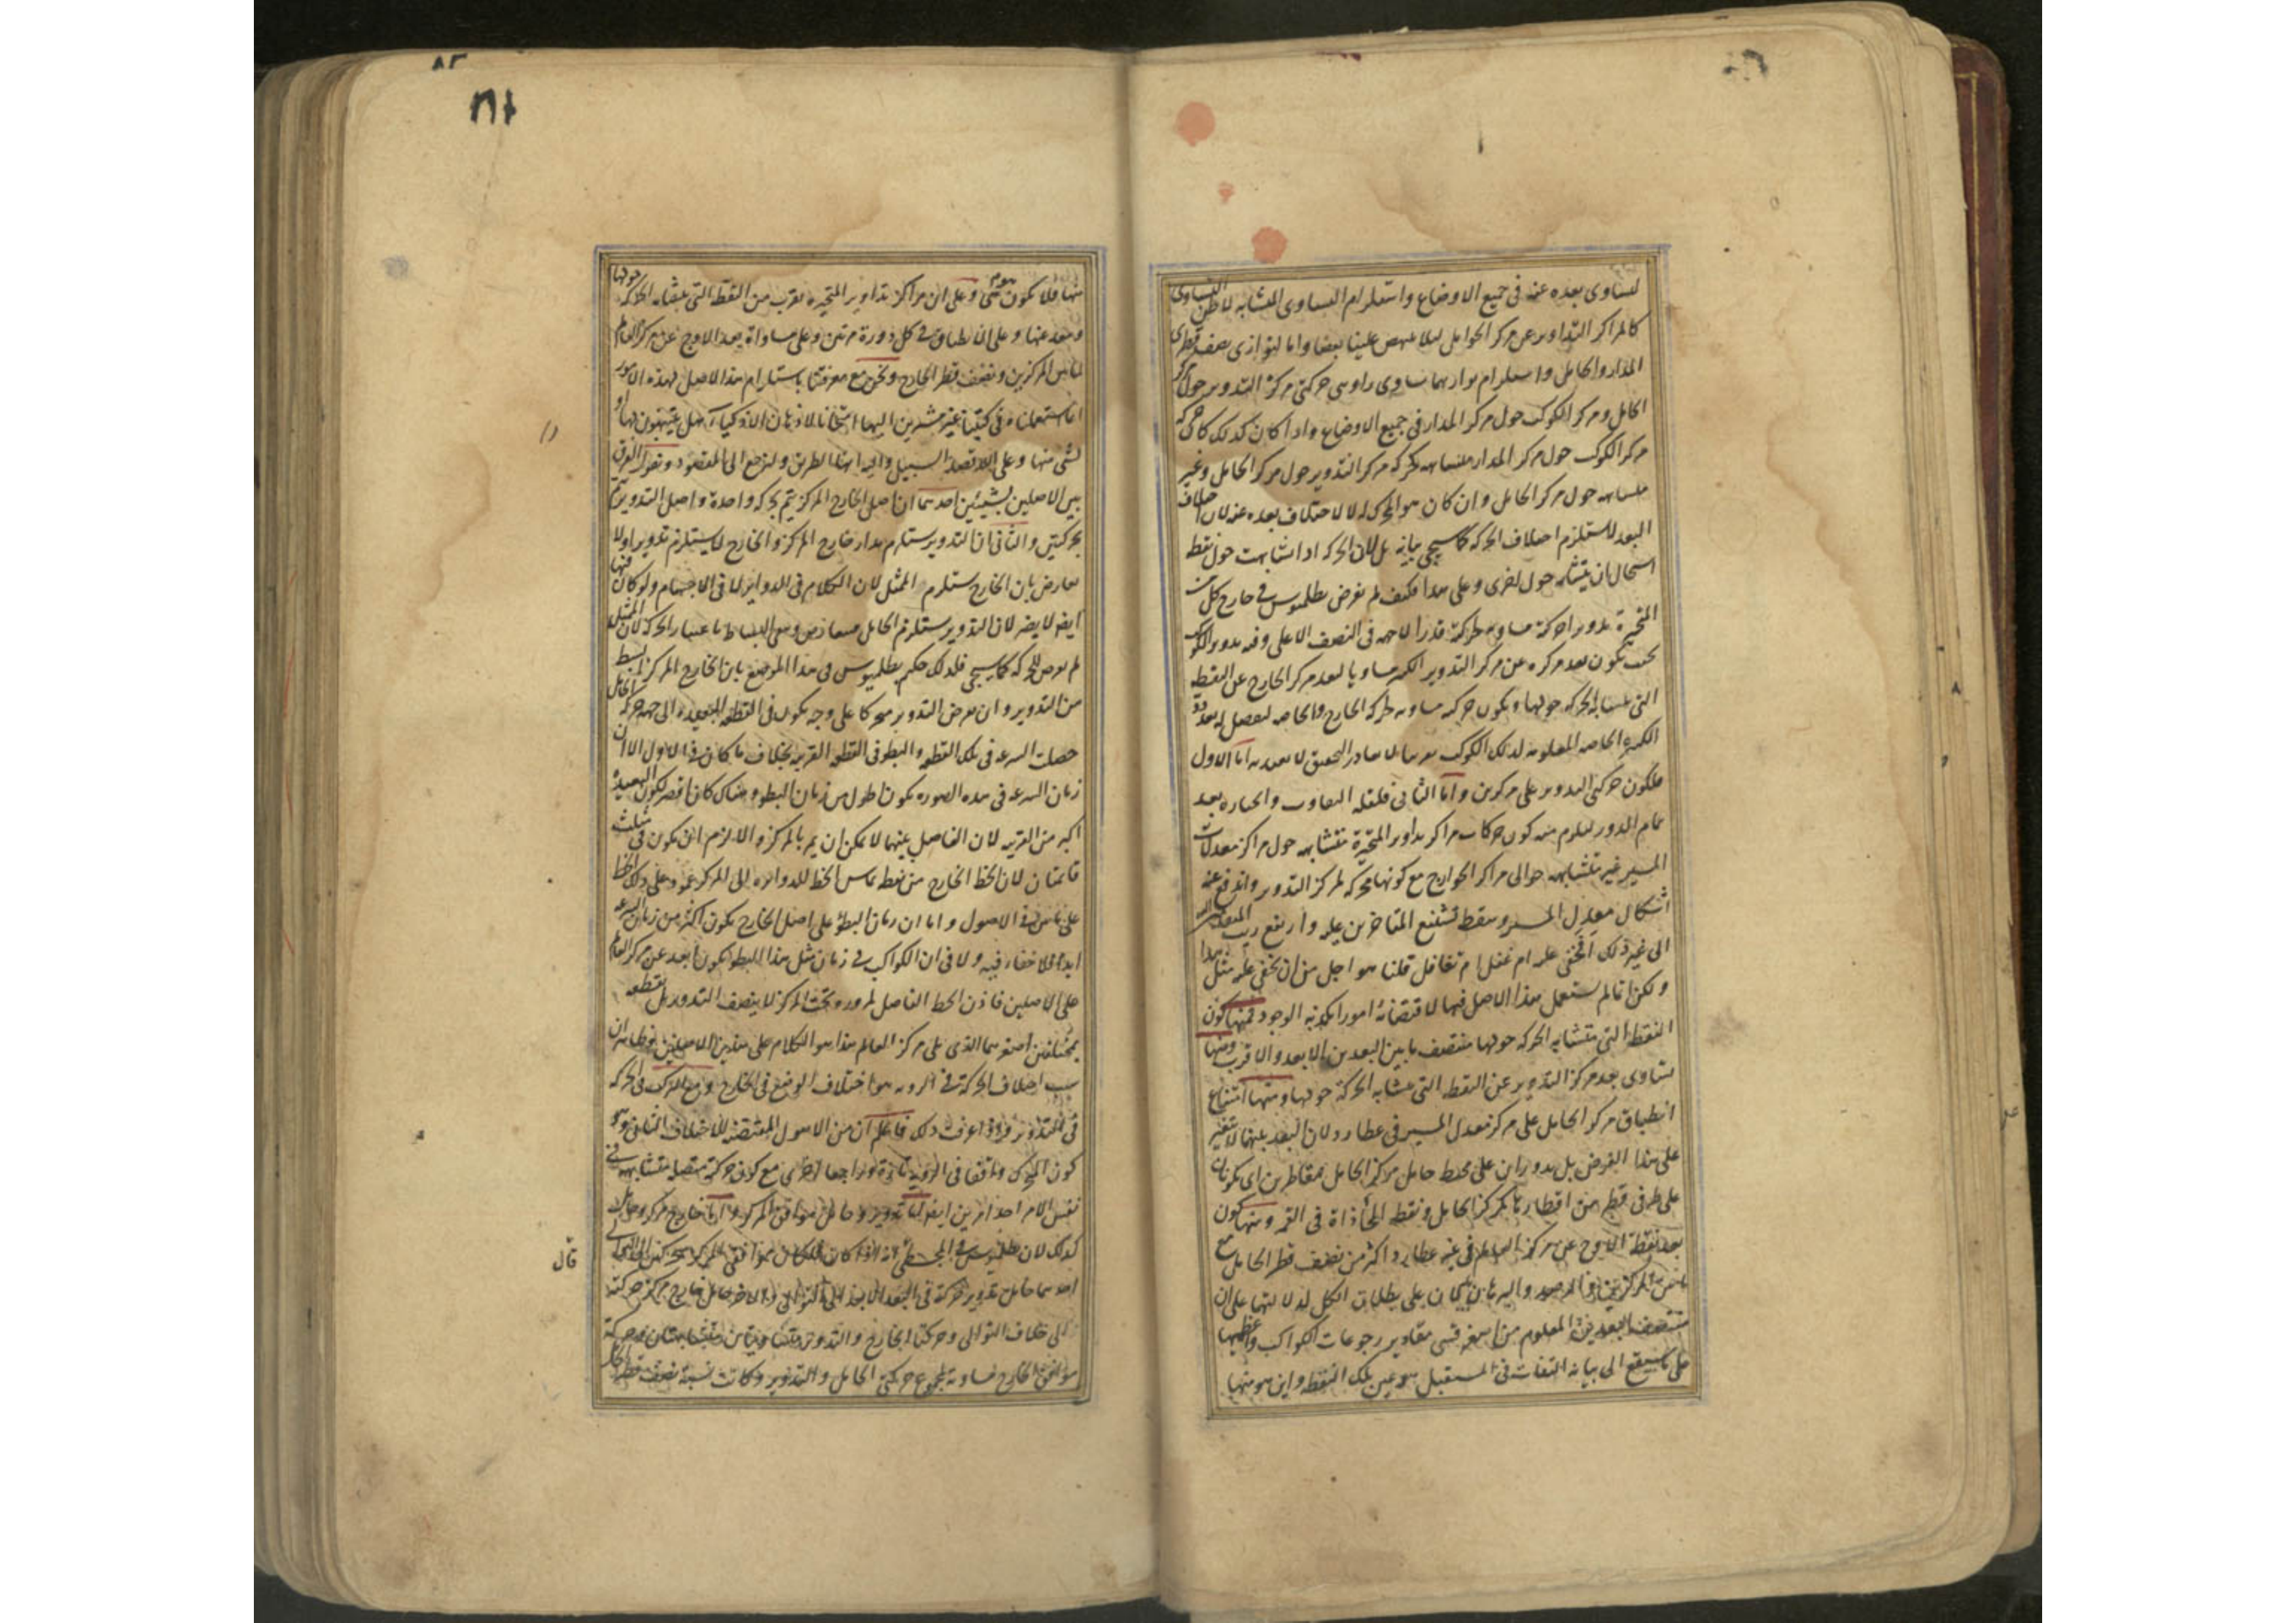 لتساوى بعده عنه فى جميع الاوضاع واستلزام التساوى التشابه لا ظن التساوى
كالمراكز التداوير عن مركز الحوامل لئلا ينهض علينا بعضا واما لتوازى نصف قطرى
المدار والحامل واستلزام توازيهما تساوى زاويتى حركتى مركز التدوير حول مركز
الحامل ومركز الكوكب حول مركز المدار فى جميع الاوضاع واذا كان كذلك كان حركة
مركز الكوكب حول مركز المدار متشابهه كحركة مركز التدوير حول مركز الحامل وغير
متشابهه حول مركز الحامل وان كان هو المحرك له لا لاختلاف بعده عنه لان اختلاف
البعد لا يستلزم اختلاف الحركة كما سيجى بيانه بل لان الحركة اذا تشابهت حول نقطة
استحال ان يتشابه حول اخرى وعلى هذا فكيف لم يفرض بطلميوس فى خارج كل من
المتحيرة تدويرا حركته مساوية لحركة قدرا لا جهه فى النصف الاعلى وفيه تدوير الكوكب
بحيث يكون بعد مركزه عن مركز التدوير الكبير مساويا لبعد مركز الخارج عن النقطة
التى تتشابه الحركة حولها ويكون حركته مساوية لحركة الخارج والخاصه ليفصل له بعد
الكبير الخاصه المعلومة لذلك الكوكب اما الاول
فلكون حركتى التدوير على مركزين واما الثانى فلقلة التفاوت وانجباره بعد
تمام الدور ليلزم منه كون حركات مراكز تداوير المتحيرة متشابهه حول مراكز معدلات
المسير غير متشابهه حوالى مراكز الخوارج مع كونها محركة لمركز التدوير واندفع عنه
اشكال معدل المسير وسقط تشنيع المتاخرين عليه وارتفع
الى غير ذلك اَخفى عليه ام غفل ام تغافل قلنا هو اجل من ان يخفى عليه مثل هذا
ولكن لما لم يستعمل هذا الاصل فيها لاقتضائه امورا مكذبه الوجود فمنها كون
النقطة التى تتشابه الحركة حولها منتصف ما بين البعدين الابعد والاقرب ومنها
تساوى بعد مركز التدوير عن النقطة التى تتشابه الحركة حولها ومنها امتناع
انطباق مركز الحامل على مركز معدل المسير فى عطارد لان البعد بينهما لا يتغير
على هذا الفرض بل يدوران على محيط حامل مركز الحامل متقاطرين اى يكونان
على طرفى قطر من اقطاره كمركز الحامل ونقطة المحاذاة فى القمر ومنها كون
بعد نقطة الاوج عن مركز العالم فى غير عطارد اكثر من نصف قطر الحامل مع
ما بين المركزين والرصد والبرهان يكذبان على بطلان الكل لدلالتها على ان
منتصف البعدين المعلوم من اصغر قسى مقادير رجوعات الكواكب واعظمها
على ما سيقع الى بيانه التفات فى المستقبل هو عين تلك النقطة واين هو منها
منها فلا يكون هو هى وعلى ان مراكز تداوير المتحيرة تقرب من النقطة التى يتشابه الحركة حولها
وتبعد عنها وعلى الانطباق فى كل دورة مرتين وعلى مساواة بعد الاوج عن مركز العالم
لما بين المركزين ونصف قطر الخارج ونحن مع معرفتنا باستلزام هذا الاصل لهذه الامور
انما استعملناه فى كتبنا غير مشيرين اليها امتحانا لاذهان الاذكياء هل يتنبهون لها او
لشى منها وعلى الله قصد السبيل واليه انتهاء الطريق ولنرجع الى المقصود ونقول الفرق
بين الاصلين بشيئين احدهما ان اصل الخارج المركز يتم بحركة واحدة واصل التدوير
بحركتين والثانى ان التدوير يستلزم مدار خارج المركز والخارج لا يستلزم تدويرا ولا
يعارض بان الخارج يستلزم الممثل لان الكلام فى الدوائر لا فى الاجسام ولو كان فيها
ايضا لا يضر لان التدوير يستلزم الحامل فيتعارضان ويبقى البساط باعتبار الحركة لان الممثل
لم يعرض للحركة كما سيجى فلذلك حكم بطلميوس فى هذا الموضع بان الخارج المركز ابسط
من التدوير وان يفرض التدوير متحركا على وجه يكون فى القطعة البعيدة الى جهة حركة الحامل
حصلت السرعة فى تلك القطعة والبطو فى القطعة القريبه بخلاف ما كان فى الاول الا ان
زمان السرعة فى هذه الصورة يكون اطول من زمان البطو وهناك كان اقصر لكون البعيدة
اكبر من القريبه لان الفاصل بينهما لا يمكن ان يمر بالمركز والا لزم ان يكون فى مثلث
قائمتان لان الخط الخارج من نقطة تماس الخط للدائرة الى المركز عمود على ذلك الخط
على ما بين فى الاصول واما ان زمان البطؤ على اصل الخارج يكون اكثر من زمان السرعة
ابدا فلا خفاء فيه ولا فى ان الكواكب فى زمان مثل هذا البطو يكون ابعد عن مركز العالم
على الاصلين فاذن الخط الفاصل لمروره تحت المركز لا ينصف التدوير بل يقطعه
بمختلفين اصغرهما الذى يلى مركز العالم هذا هو الكلام على هذين الاصلين فظاهر ان
سبب اختلاف الحركة فى الرويه هو اختلاف الوضع فى الخارج ومع التركيب فى الحركة
فى التدوير واذا عرفت ذلك فاعلم ان من الاصول المقتضية للاختلاف الثانى وهو
كون المتحرك واقفا فى الروية تارة وراجعا اخرى مع كون حركته متصلة متشابهه فى
نفس الامر احد امرين ايضا اما تدوير وحامل موافق المركز واما خارج مركز وحامل
كذلك لان بطلميوس فى المجسطى انه اذا كان فلكان موافقى المركز
احدهما حامل تدوير حركته فى البعد الابعد الى التوالى والاخر حامل خارج مركز حركته
الى خلاف التوالى وحركتا الخارج والتدوير متساويتان متشابهتان وحركة
موافق الخارج مساوية لمجموع حركتى الحامل والتدوير وكانت نسبة نصف قطر الحامل
قال